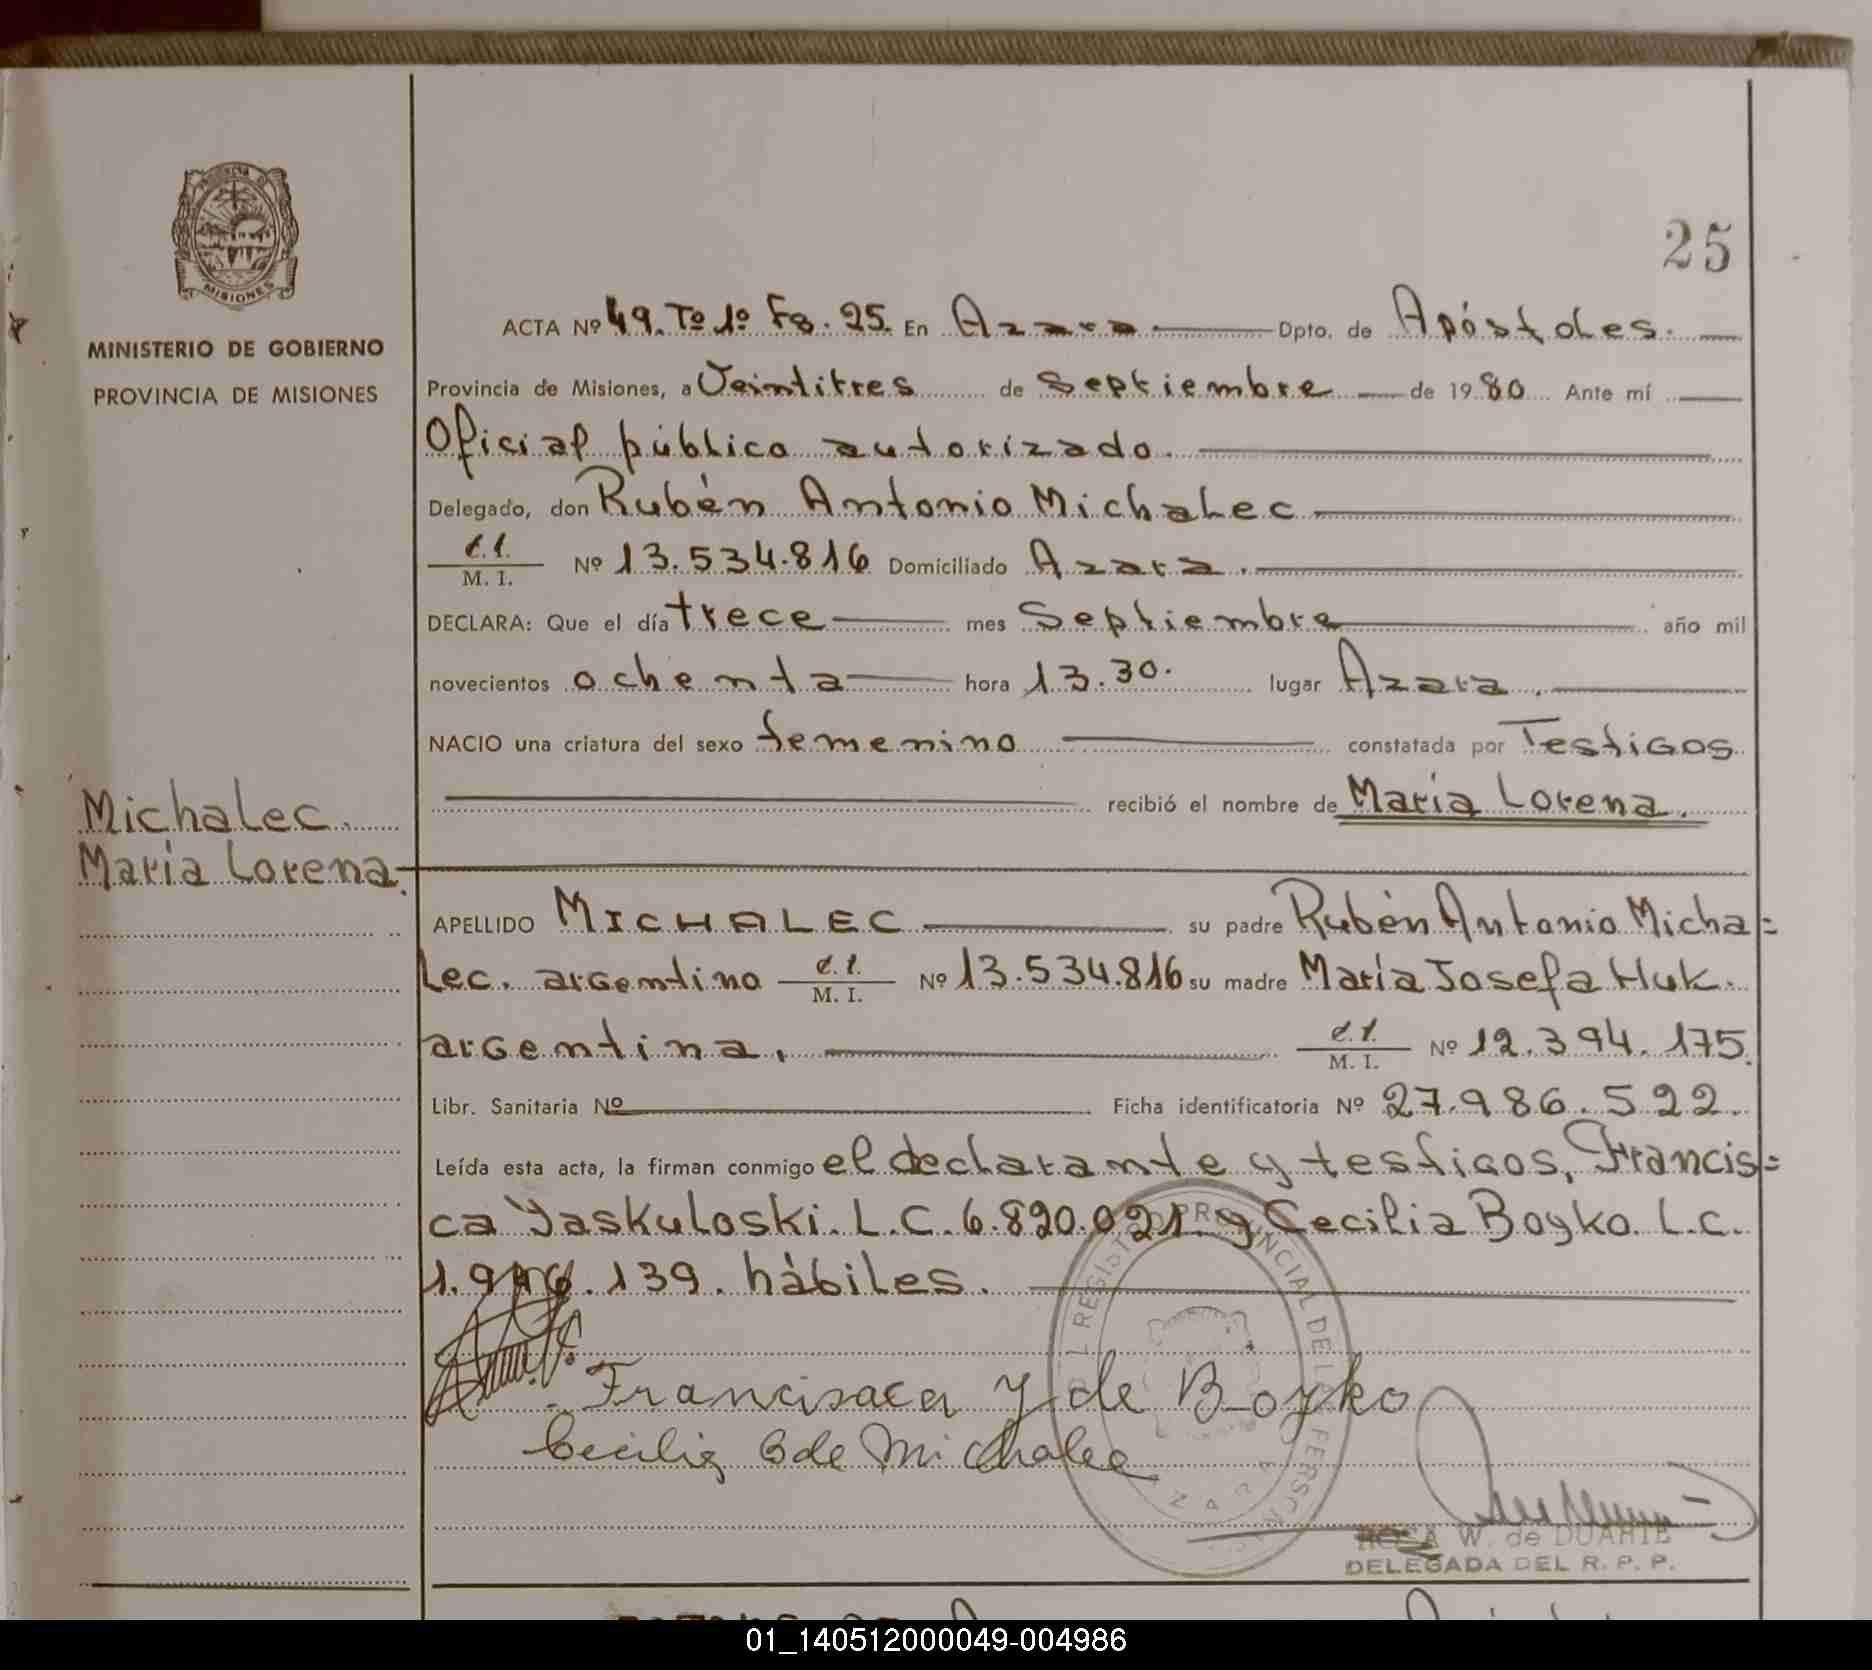 25
MISIONES
MINISTERIO DE GOBIERNO
PROVINCIA DE MISIONES
Michalec.
María Lorena.
ACTA Nº 49. Tº 1º Fº. 25. En Azara Dpto. de Apóstoles.
Provincia de Misiones, a Veintitres de Septiembre de 1980 Ante mí
Oficial público autorizado.
Delegado, don Rubén Antonio Michalec
C.I. / M. I. Nº 13.534.816 Domiciliado Azara.
DECLARA: Que el día trece mes Septiembre año mil
novecientos ochenta hora 13.30. lugar Azara.
NACIO una criatura del sexo femenino constatada por Testigos
recibió el nombre de María Lorena.
APELLIDO MICHALEC su padre Rubén Antonio Micha=
lec. argentino C.I. / M. I. Nº 13.534.816 su madre María Josefa Huk.
argentina, C.I. / M. I. Nº 12.394.175.
Libr. Sanitaria Nº Ficha identificatoria Nº 27.986.522.
Leída esta acta, la firman conmigo el declarante y testigos, Francis=
ca Yaskuloski. L.C. 6.820.021. y Cecilia Boyko. L.C.
139. hábiles.
Francisaca Y de Boyko
Cecilia B de Michalec
AZARA
ROSA W. de DUARTE
DELEGADA DEL R. P. P.
01_140512000049-004986